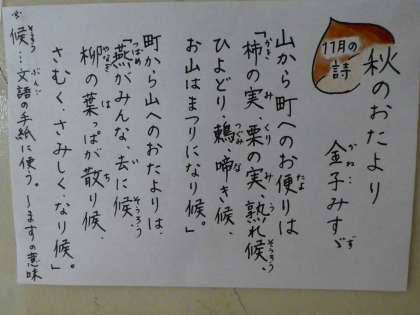 11月の詩
秋のおたより
金子みすゞ
山から町へのお便りは
「柿の実、栗の実、熟れ候、
ひよどり、鶫、啼き候、
お山はまつりになり候。
町から山へのおたよりは、
「燕がみんな、去に候、
柳の葉っぱが散り候、
さむく、さみしく、なり候。」
※候…文語の手紙に使う。〜ますの意味